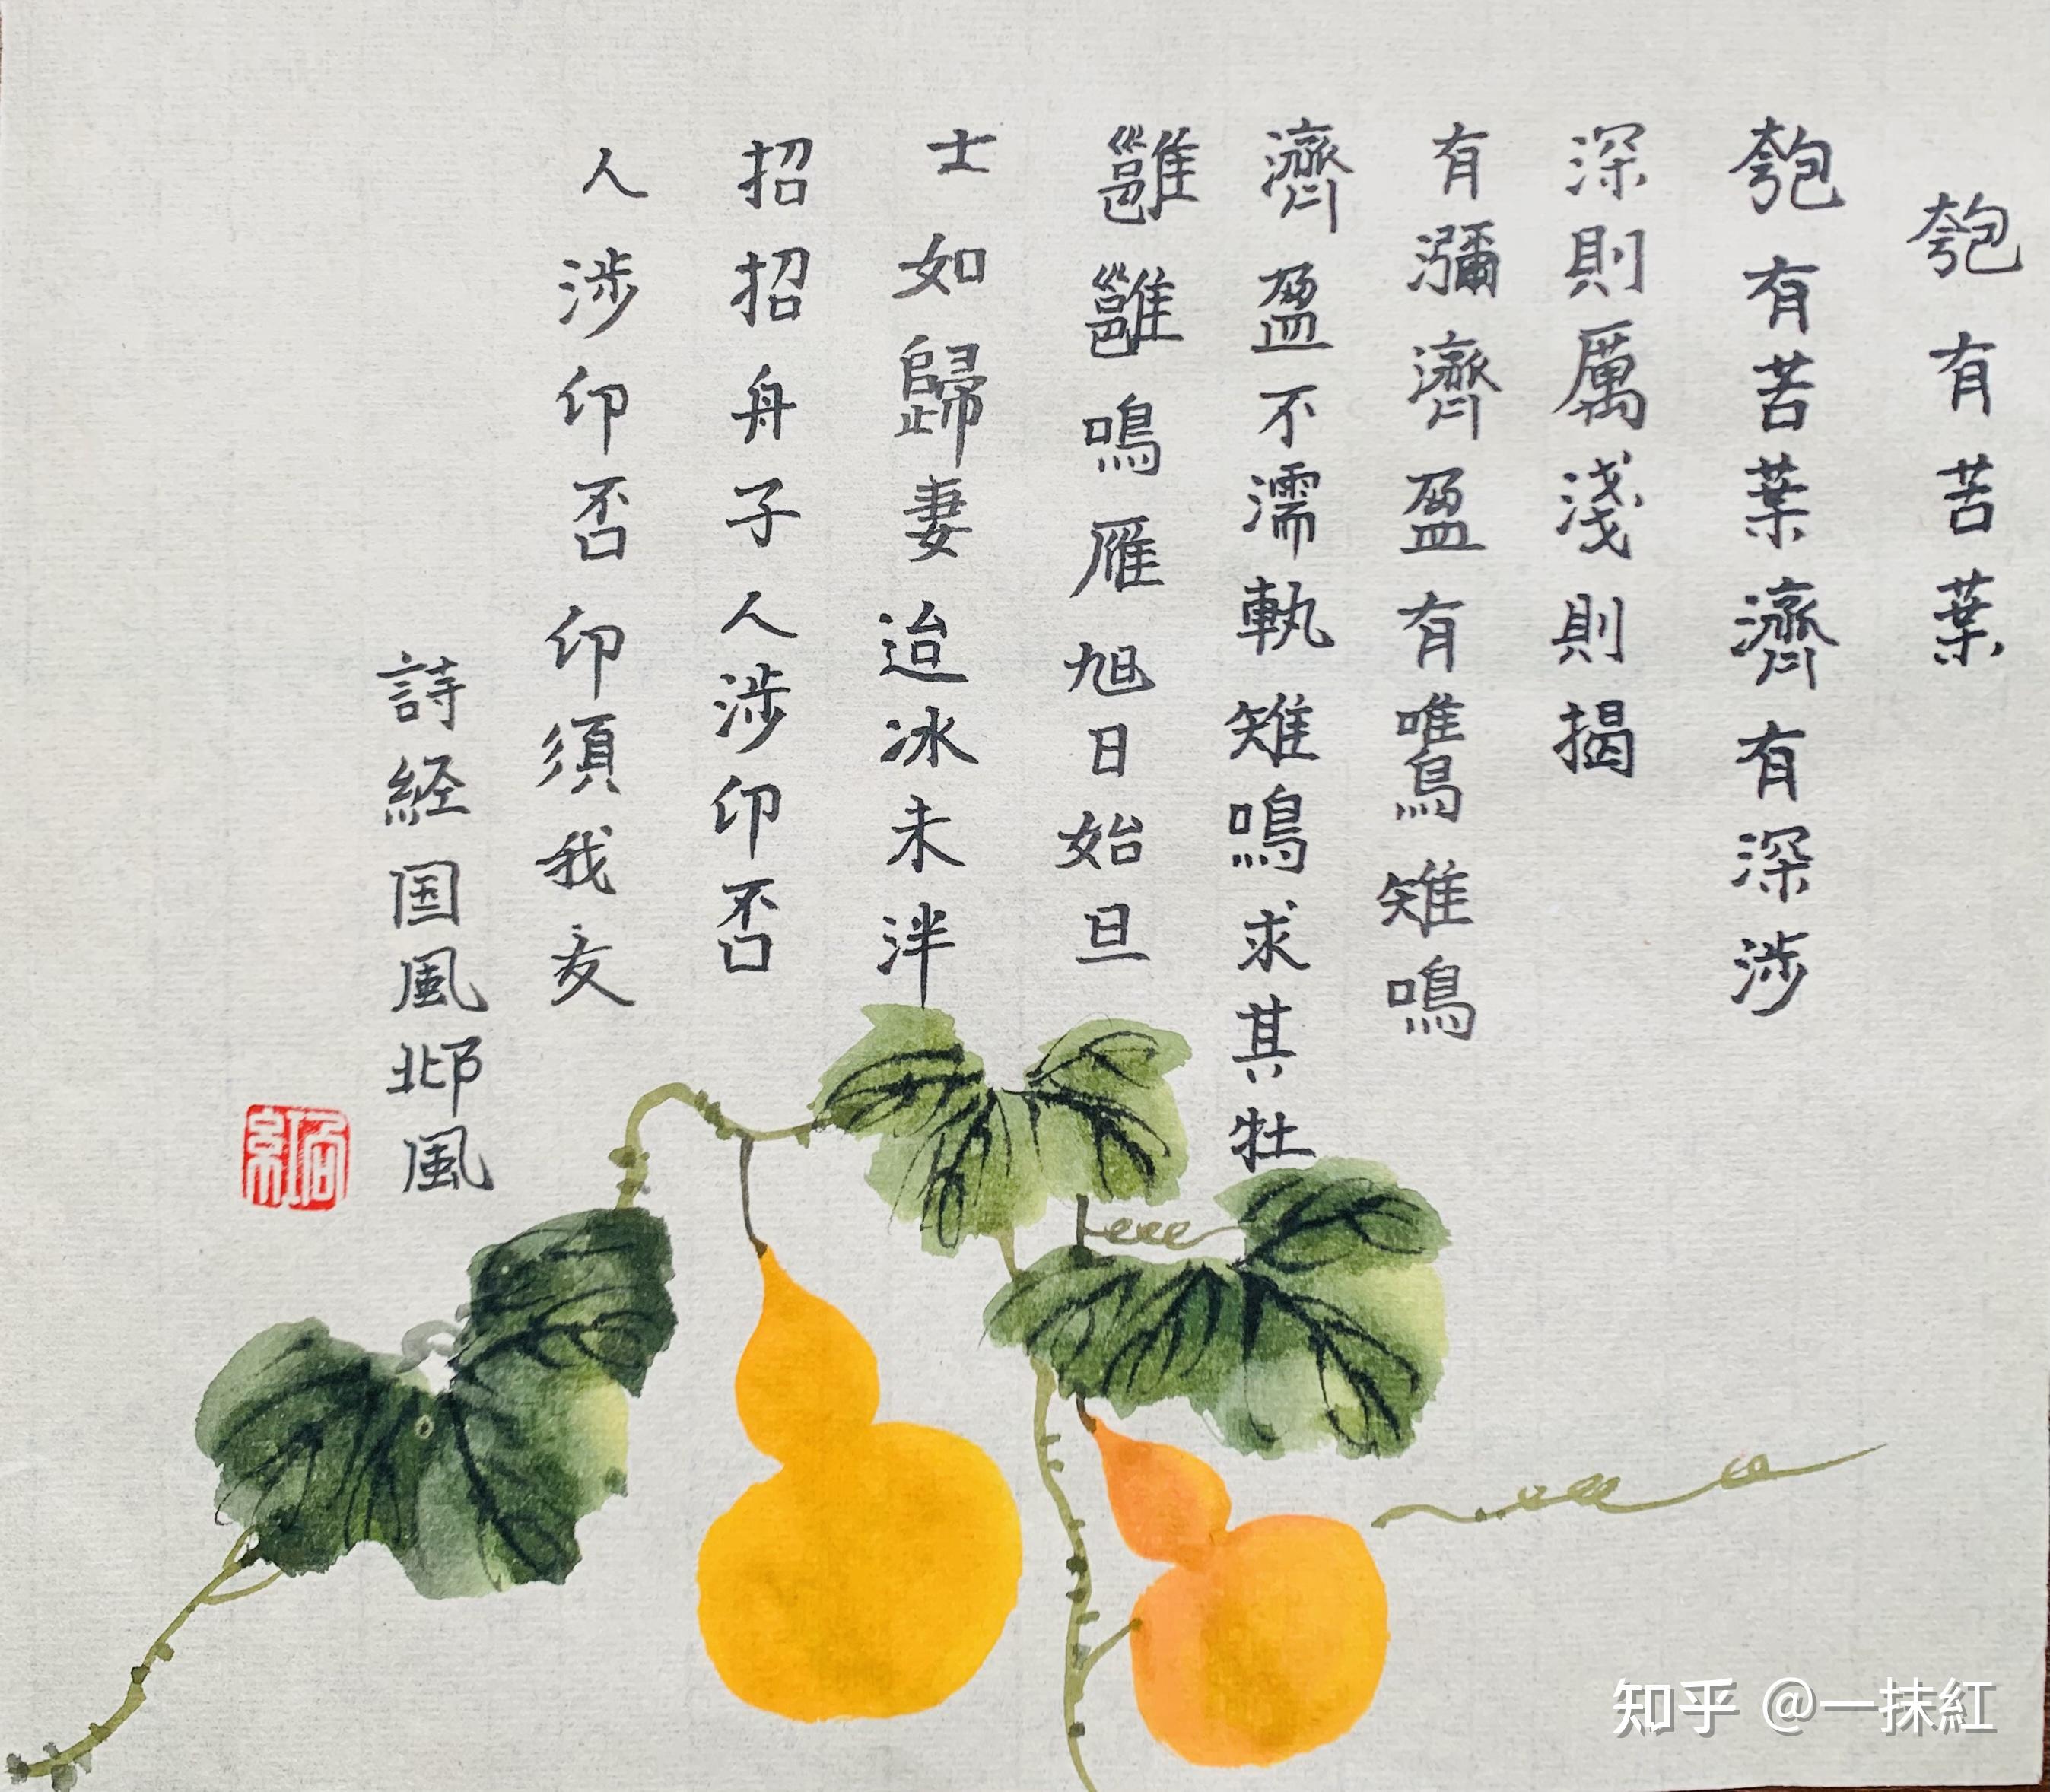 匏有苦葉
匏有苦葉濟有深涉
深則厲淺則揭
有瀰濟盈有鷕雉鳴
濟盈不濡軌雉鳴求其牡
雝雝鳴雁旭日始旦
士如歸妻迨冰未泮
招招舟子人涉卬否
人涉卬否卬須我友
詩経国風邶風
知乎 @一抹紅